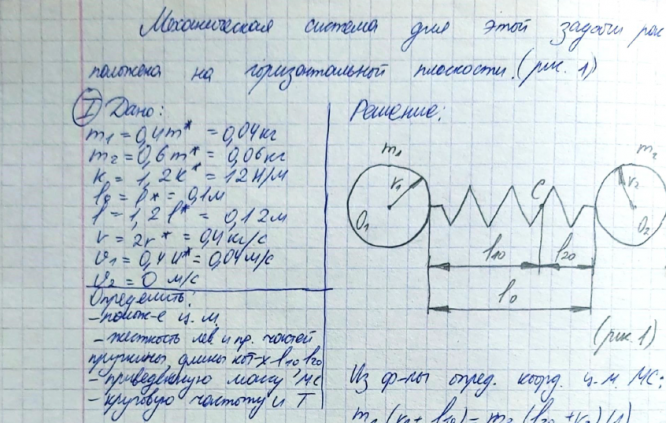 Механическая система для этой задачи рас
положена на горизонтальной плоскости. (рис. 1)
I Дано:
m1 = 0,4m* = 0,04кг
m2 = 0,6m* = 0,06кг
k = 1,2k* = 12Н/м
l0 = l* = 0,1м
l = 1,2l* = 0,12м
r = 2r* = 0,4кг/с
v1 = 0,4v* = 0,04м/с
v2 = 0 м/с
Определить:
- полож-е ц.м
- жесткость лев и пр. частей
пружины, длины кот-х l10, l20
- приведенную массу МС
- круговую частоту и T
Решение:
m1 m2
r1 C r2
O1 O2
l10 l20
l0
(рис. 1)
Из ф-лы опред. коорд. ц.м МС:
m1 (r1 + l10) = m2 (l20 + r2) (1)